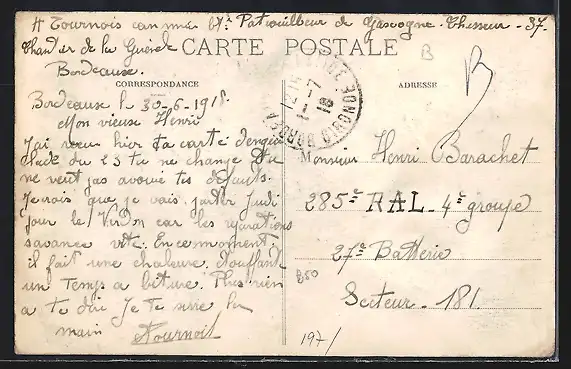 H Tournois can mié Bt. Patrouilleur de Gascogne. Chasseur. 37.
Chantier de la Gironde
CARTE POSTALE
Bordeaux.
CORRESPONDANCE
ADRESSE
Bordeaux le 30-6-1918
Mon vieux Henri
J'ai reçu hier ta carte
du 23 tu ne change tu
ne veut pas avoué tes défauts.
Je crois que je vais partir Jeudi
pour le car les réparations
savance vite. En ce moment
il fait une chaleure étouffante
un temps a biture. Plus rien
a te dire Je te serre la
main Tournois
Monsieur Henri Barachet
285e RAL - 4e groupe
27e Batterie
Secteur - 181.
B
B
B50
197/